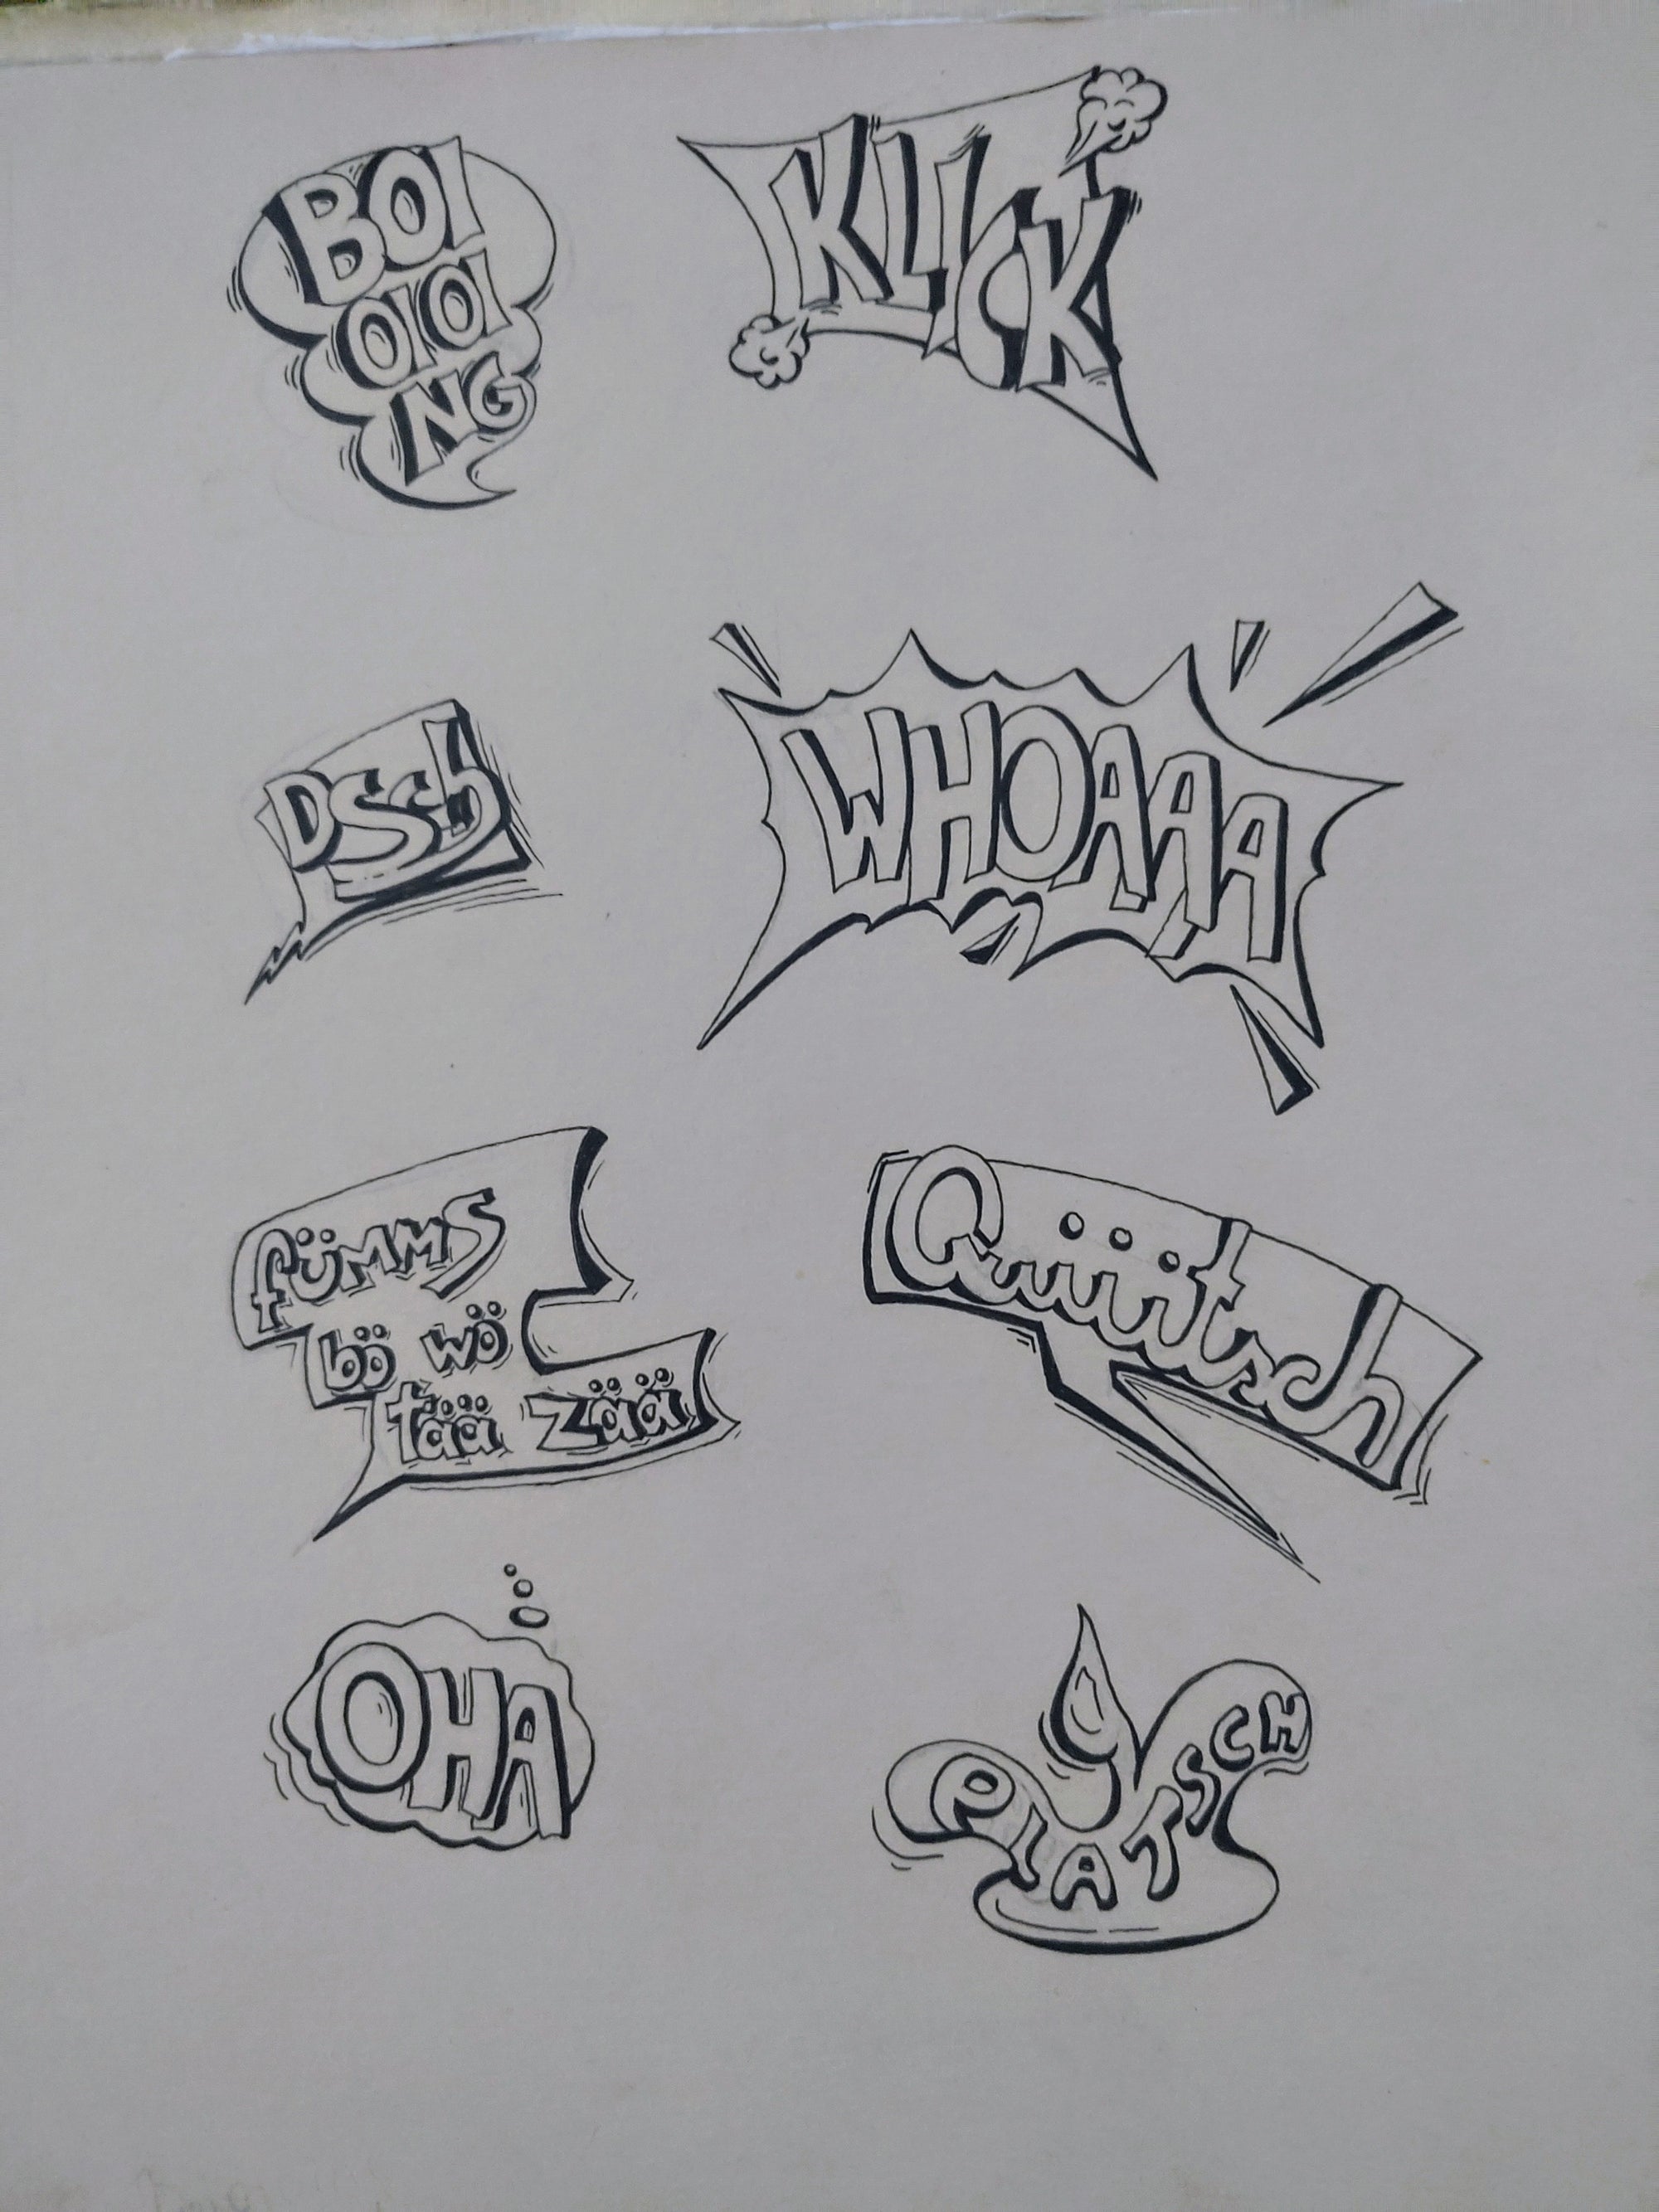 BOI
OIOI
NG
KLICK
Dsch
WHOAAA
fümms
bö wö
tää zää
Quiiitsch
OHA
PLATSCH